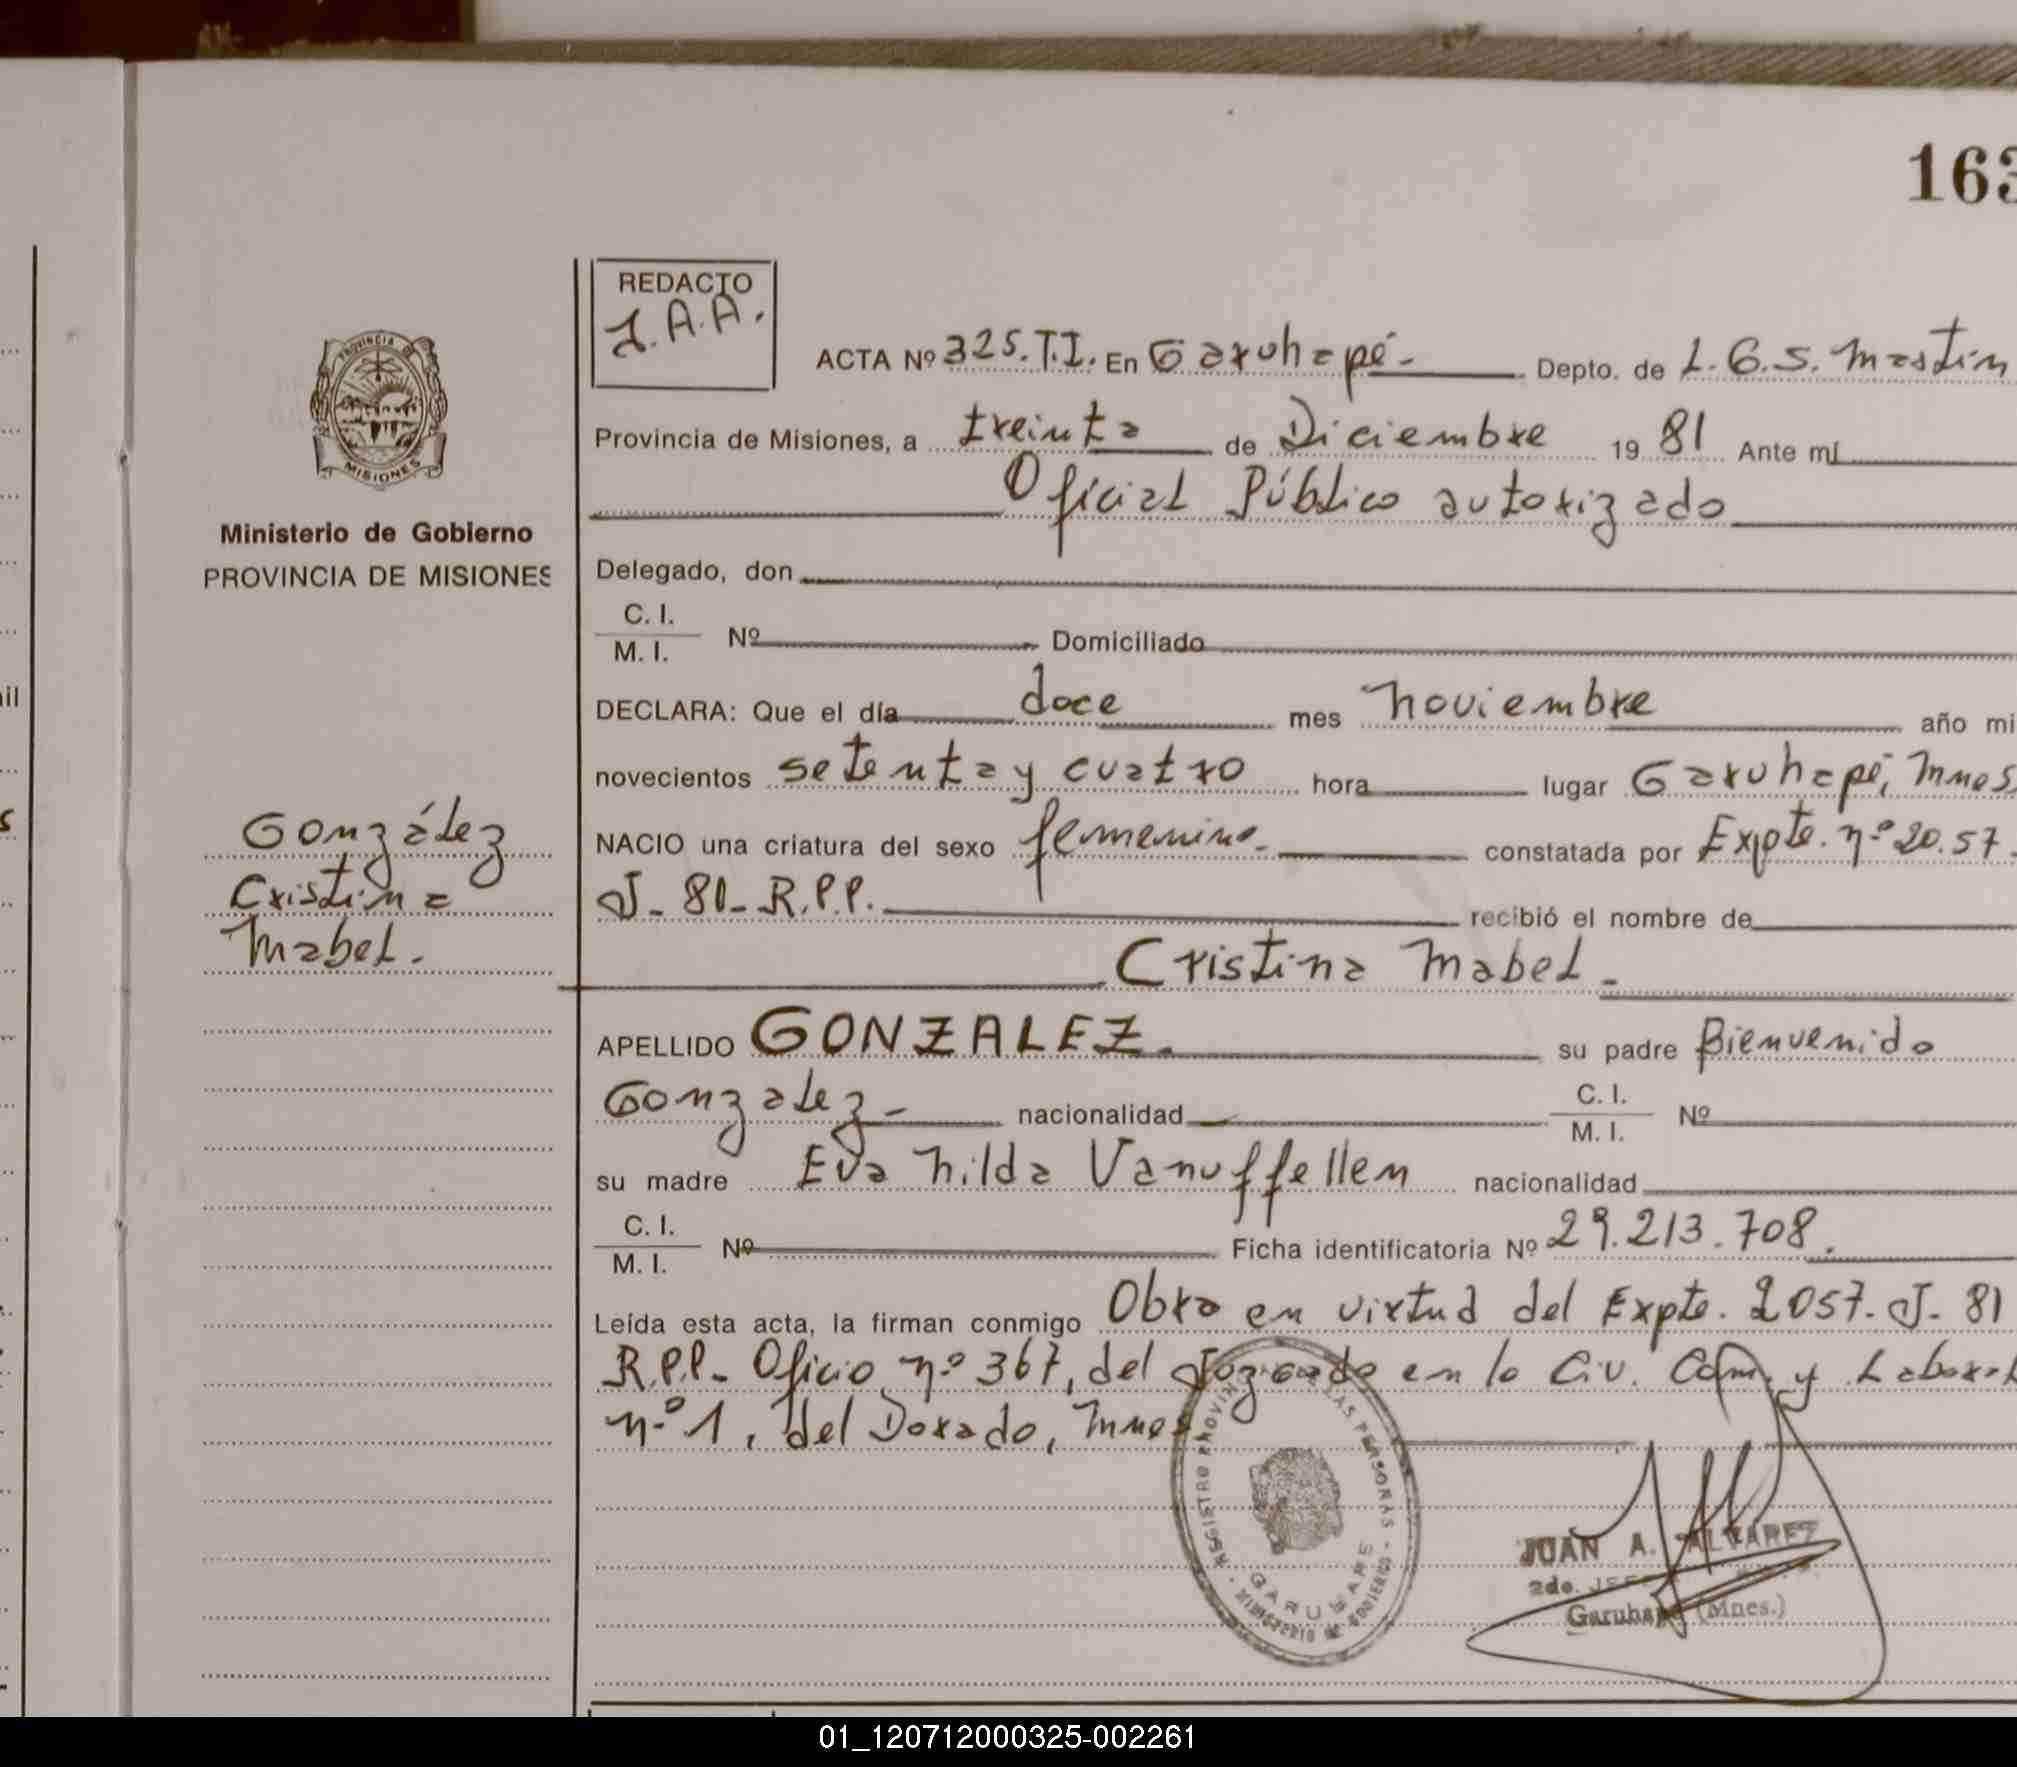 163
REDACTO
J.A.A.
ACTA Nº 325.T.I. En Garuhapé- Depto. de L.G.S. Martín
Provincia de Misiones, a treinta de Diciembre 19 81 Ante mí
Oficial Público autorizado
PROVINCIA DE
MISIONES
Ministerio de Gobierno
PROVINCIA DE MISIONES
Delegado, don
C. I.
M. I. Nº Domiciliado
DECLARA: Que el día doce mes noviembre año mi
novecientos setenta y cuatro hora lugar Garuhapé, Mnes
NACIO una criatura del sexo femenino. constatada por Expte. nº 20.57.
J- 81- R.P.P. recibió el nombre de
Cristina Mabel.
González
Cristina
Mabel.
APELLIDO GONZALEZ. su padre Bienvenido
Gonzalez- nacionalidad C. I.
M. I. Nº
su madre Eva hilda Vanuffellen nacionalidad
C. I.
M. I. Nº Ficha identificatoria Nº 29.213.708.
Leída esta acta, la firman conmigo Obra en virtud del Expte. 2057. J- 81
R.P.P- Oficio nº 367, del Juzgado en lo Civ. Com. y Laboral
nº 1, del Dorado, Mnes
REGISTRO PROVIN LAS PERSONAS - MINISTERIO DE GOBIERNO -
GARUHAPE
JUAN A. ALVAREZ
2do. JEFE
Garuhapé (Mnes.)
01_120712000325-002261